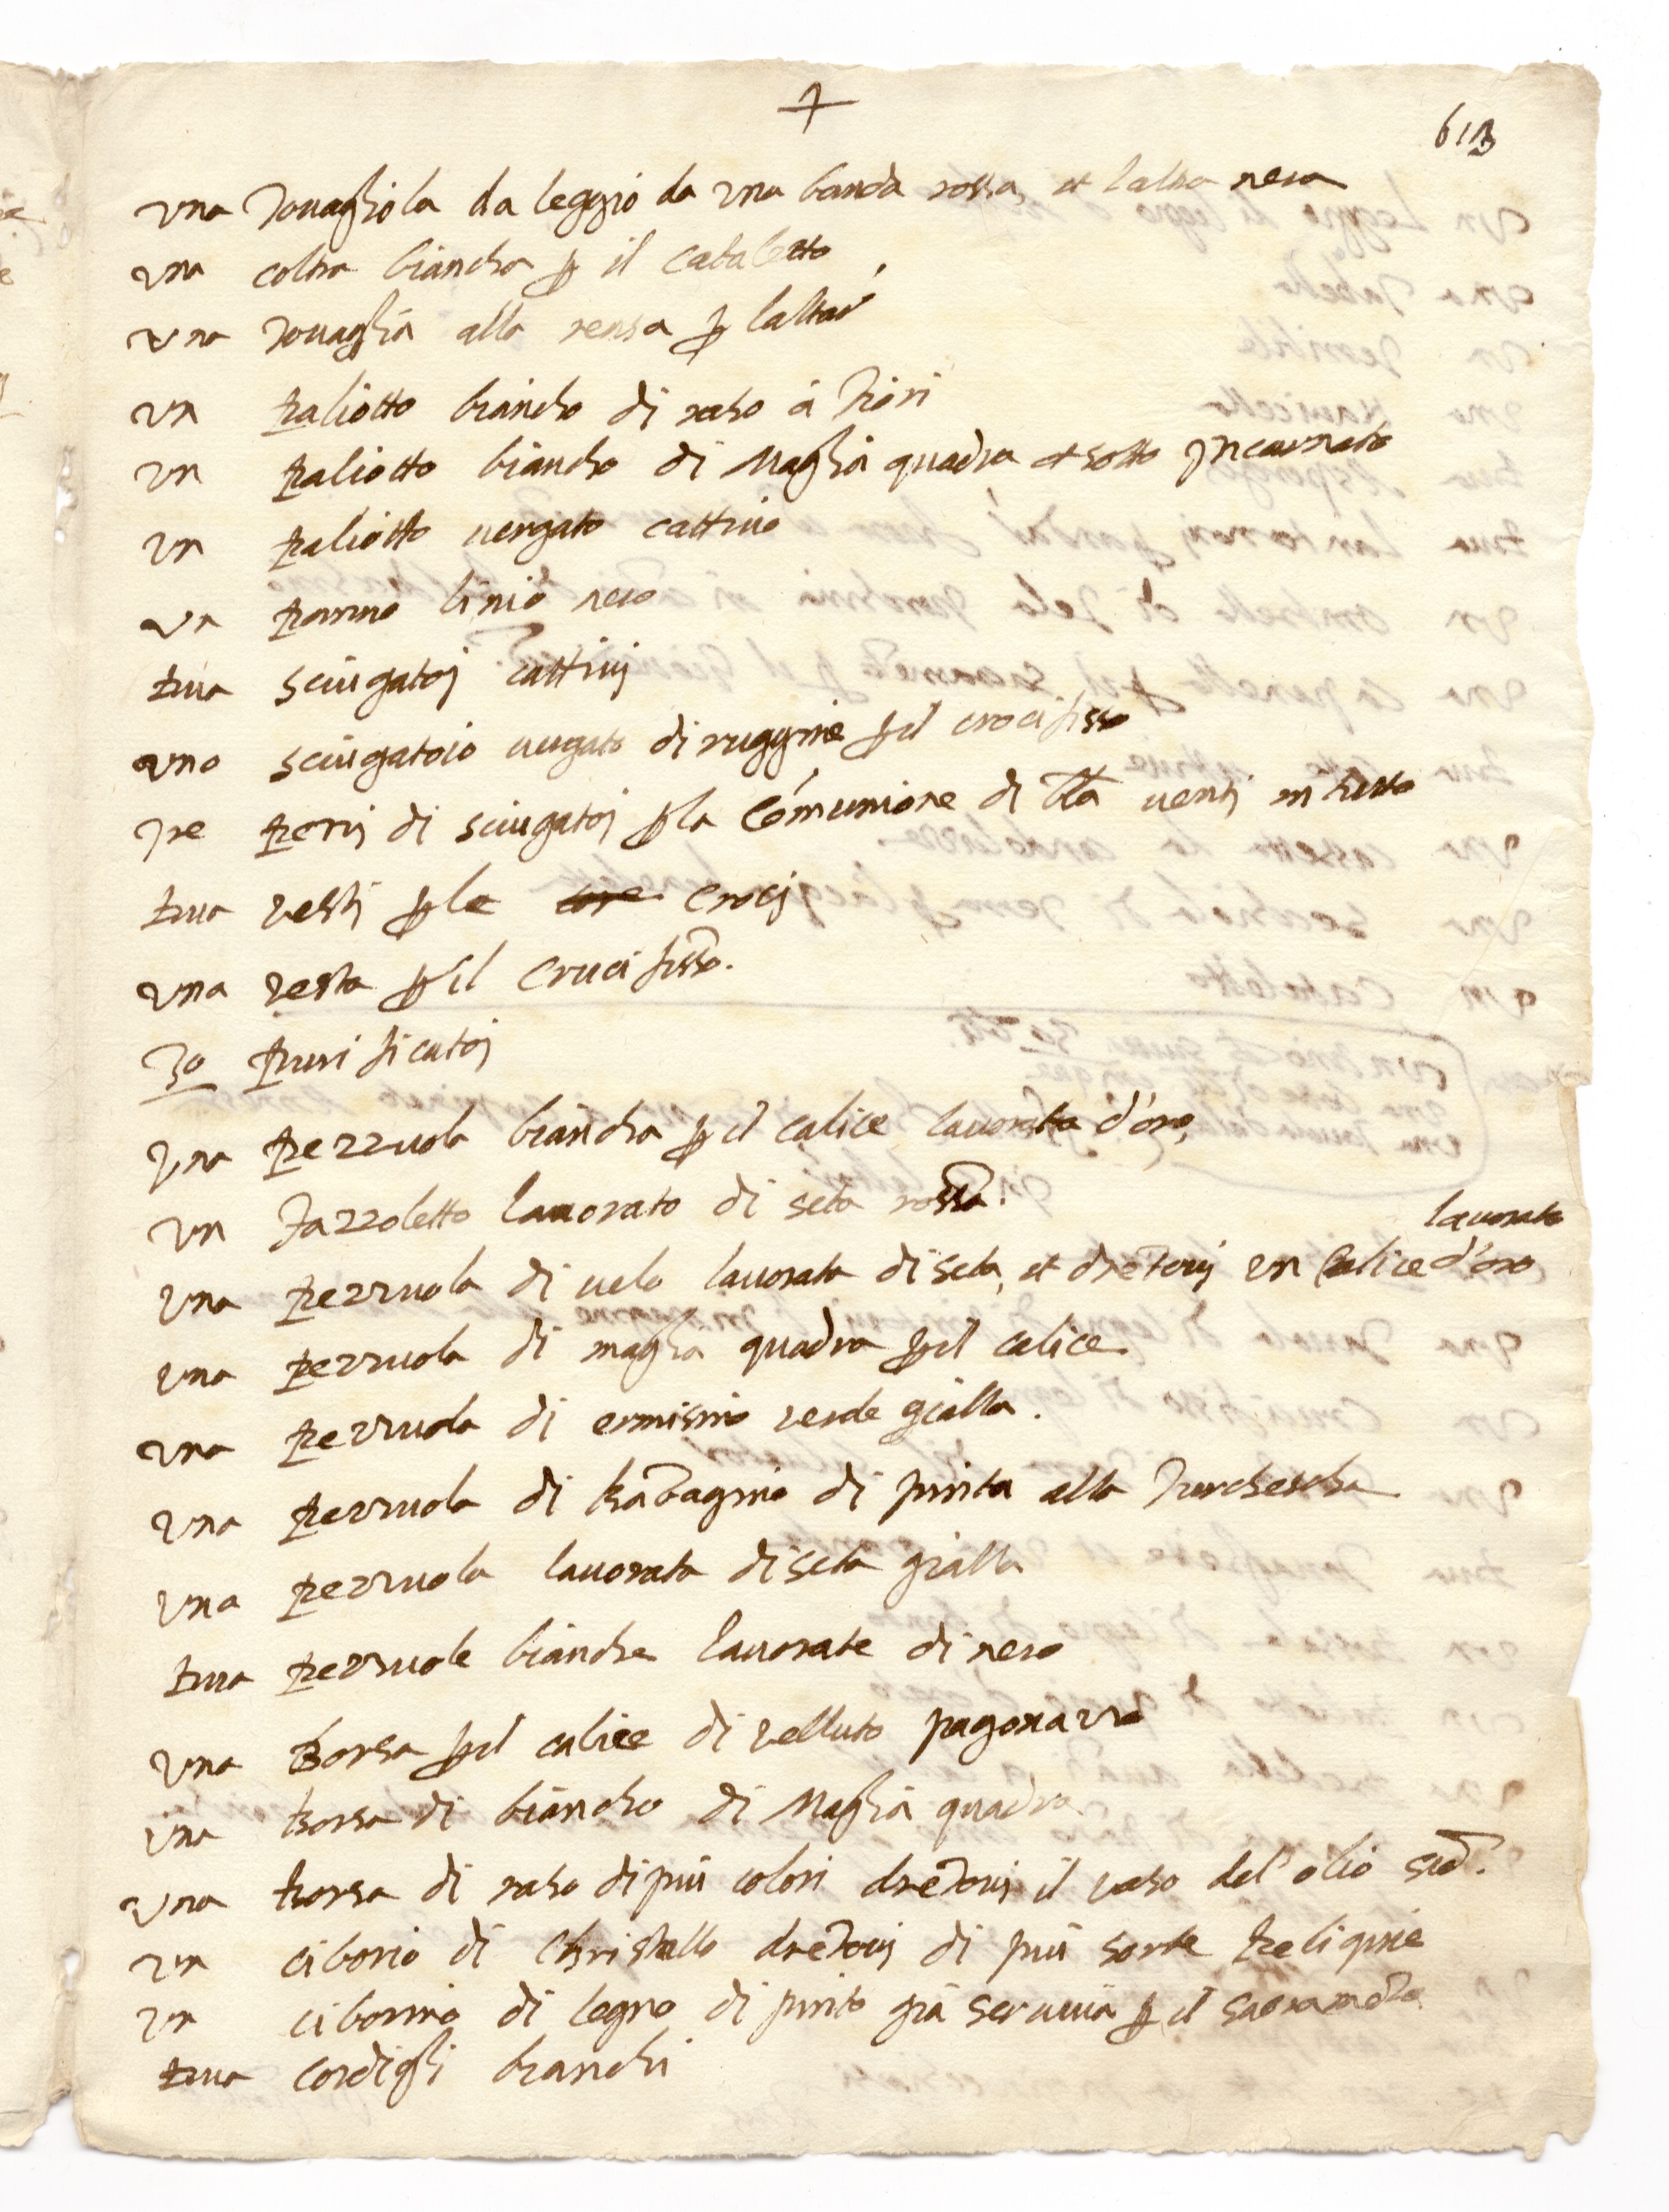 +
613
una Touagliola da leggio da una banda rossa, et laltra nera
una coltra biancha p il cataletto
una Touaglia alla rensa p laltar
un paliotto biancho di raso à fiori
un paliotto biancho di Maglia quadra et sotto Incarnato
un paliotto uergato cattiuo
un panno lino nero
dua sciugatoi cattiui
uno sciugatoio uergato di ruggine p il crocifisso
Tre pezi di sciugatoi p la Comunione di bra uenti in tutto
dua vesti p le croci
una vesta p il Crucifisso.
30 purificatoi
Una pezzuola biancha p il calice lauorata d'oro,
un fazzoletto lauorato di seta rossa.
lauorato
una pezzuola di uelo lauorata di seta, et dretoui un Calice d'oro
una pezzuola di maglia quadra p il calice
una pezzuola di ermisino verde gialla.
una pezzuola di banbagino dipinta alla Turchescha
una pezzuola lauorata di seta gialla
dua pezzuole bianche lauorate di nero
una Borsa p il calice di velluto pagonazzo
una borsa di biancho di Maglia quadra
una borsa di raso di più colori dretoui il uaso del'olio sto.
un ciborio di Christallo dretoui di più sorte Reliquie
un ciborino di legno dipinto già seruiua p il Sacrameto
dua Cordigli bianchi